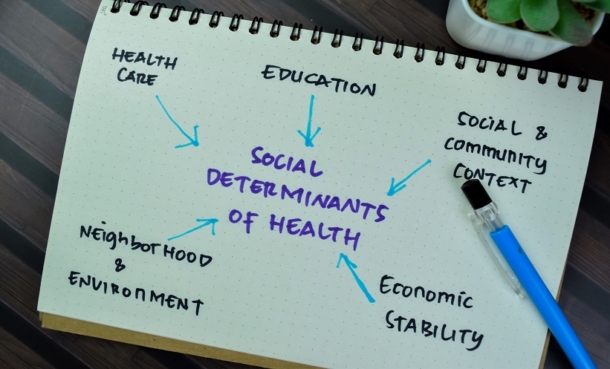 HEALTH
CARE
EDUCATION
SOCIAL &
COMMUNITY
CONTEXT
SOCIAL
DETERMINANTS
OF HEALTH
NEIGHBORHOOD
&
ENVIRONMENT
ECONOMIC
STABILITY